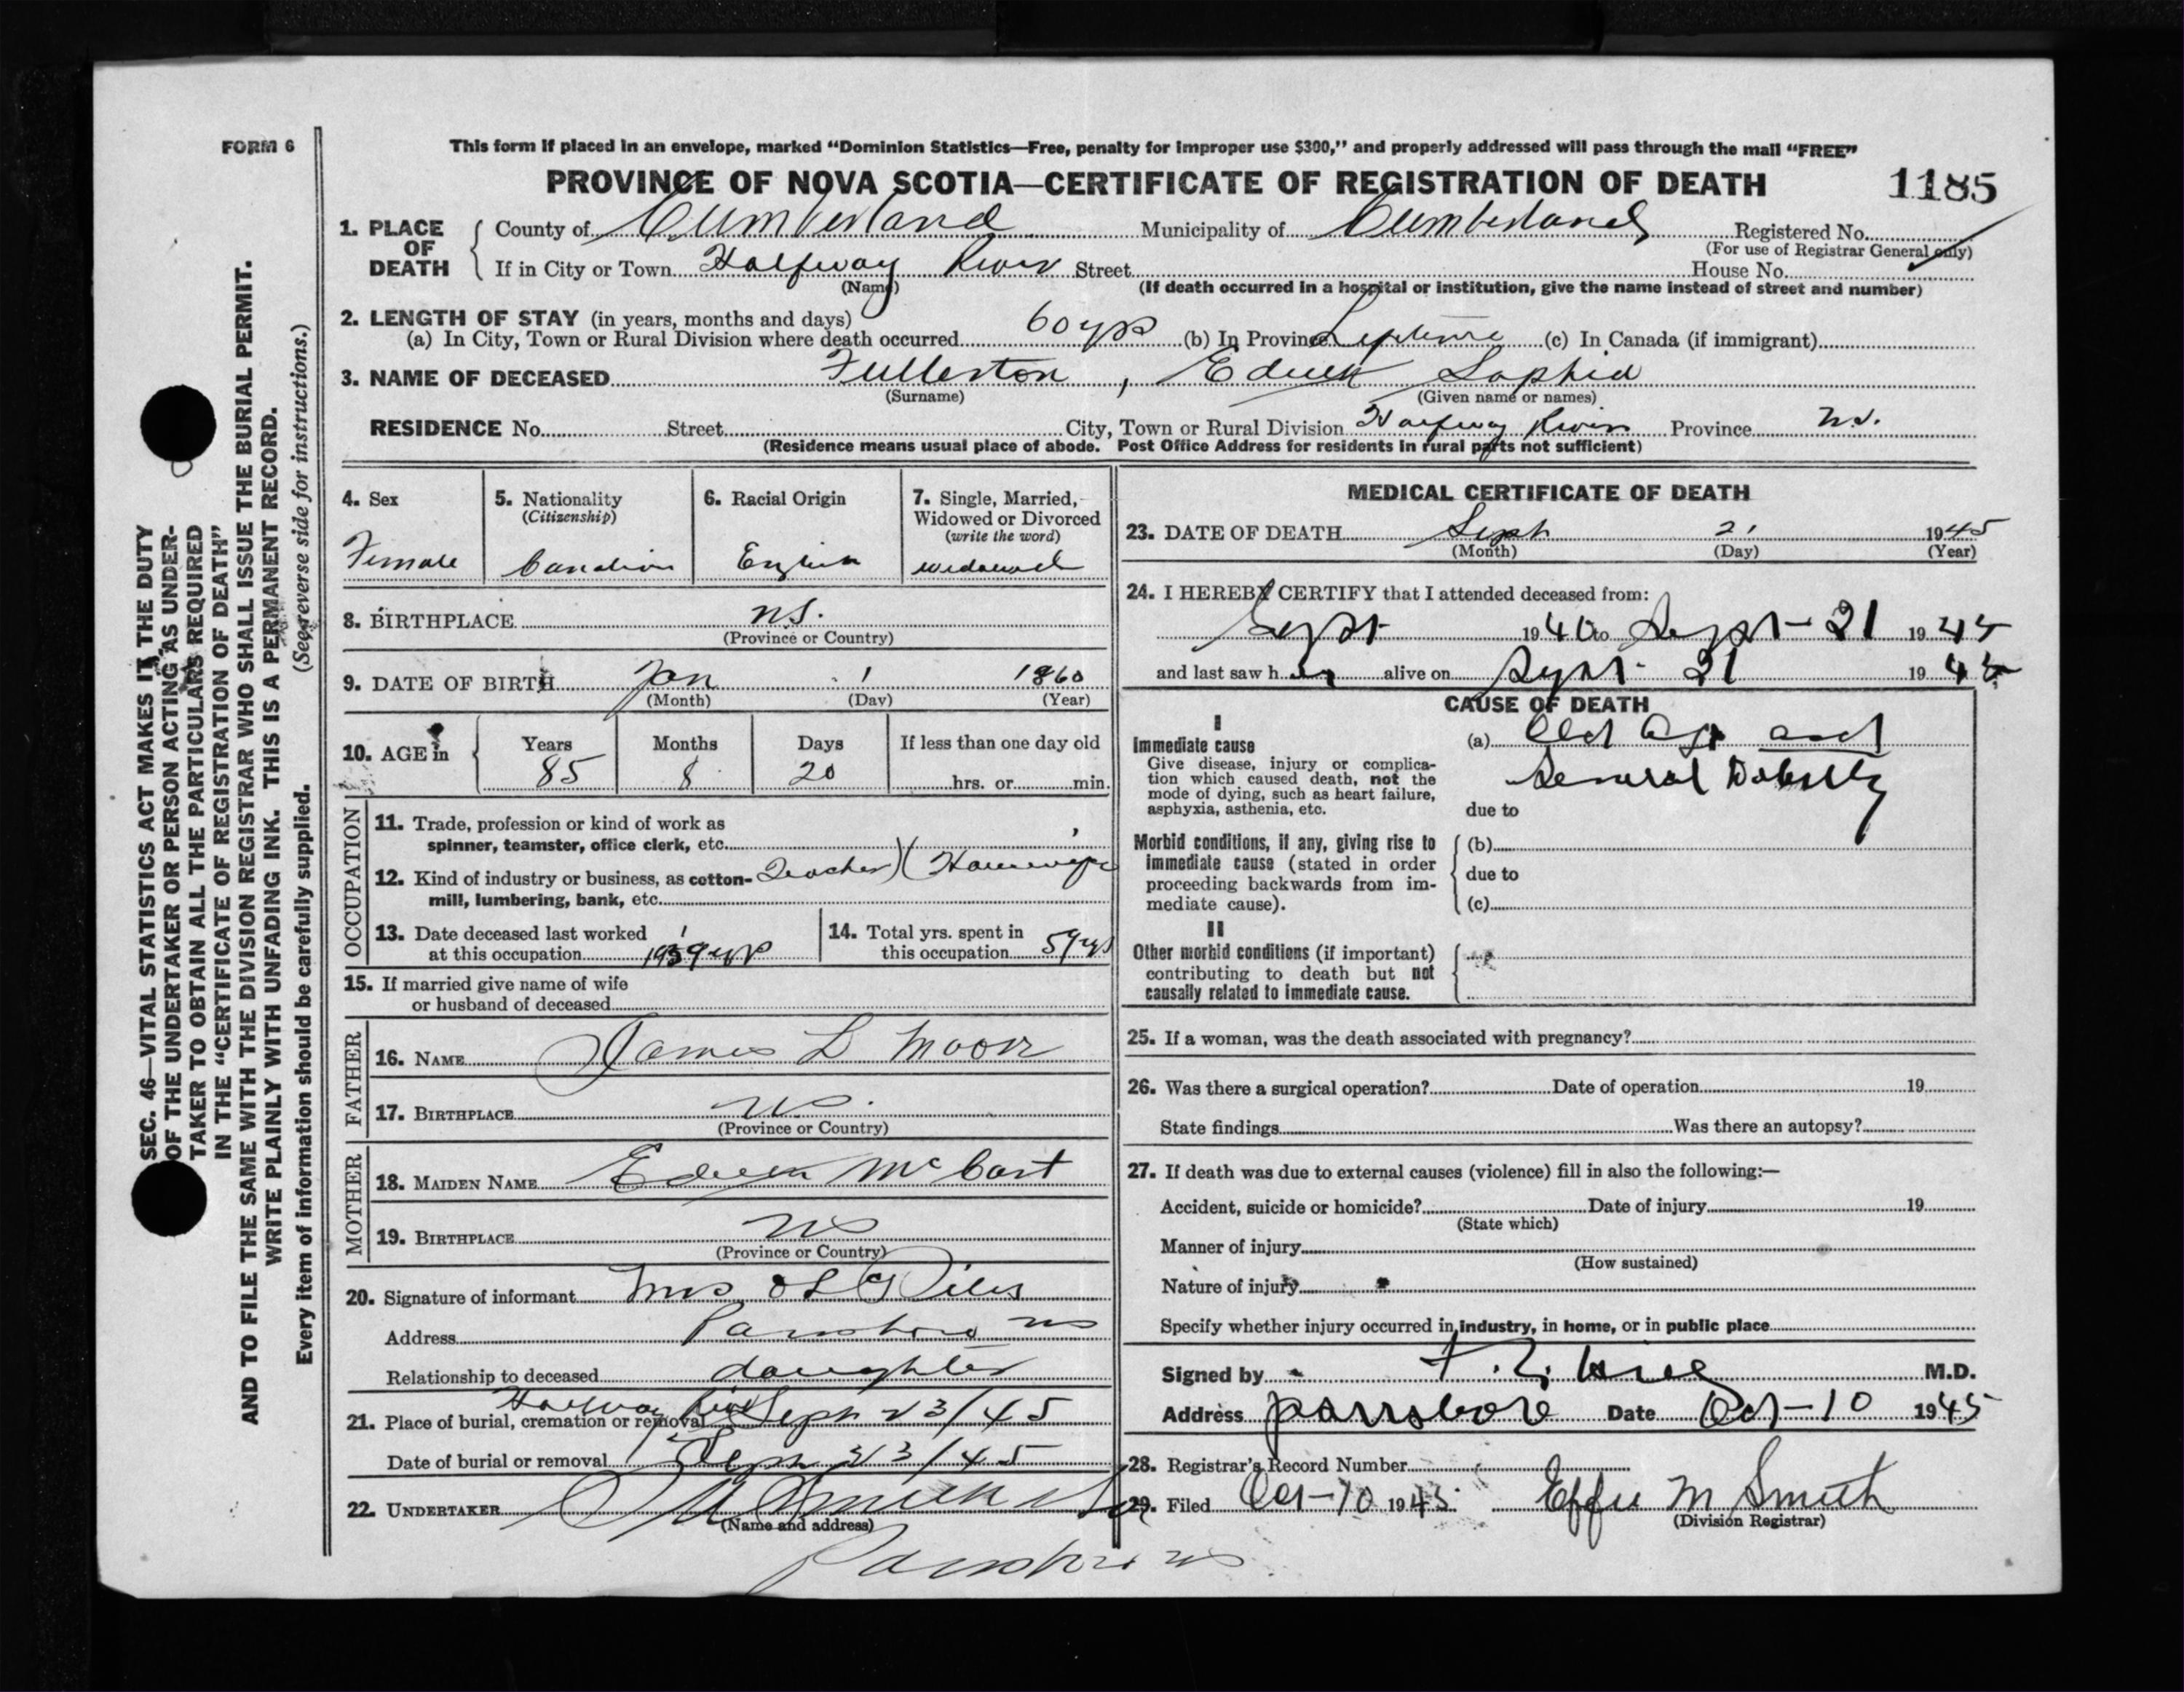 FORM 6
This form if placed in an envelope, marked “Dominion Statistics—Free, penalty for improper use $300,” and properly addressed will pass through the mail “FREE”
PROVINCE OF NOVA SCOTIA—CERTIFICATE OF REGISTRATION OF DEATH 1185
1. PLACE OF DEATH County of Cumberland Municipality of Cumberland Registered No.
(For use of Registrar General only)
If in City or Town Halfway River Street House No.
(Name) (If death occurred in a hospital or institution, give the name instead of street and number)
2. LENGTH OF STAY (in years, months and days)
(a) In City, Town or Rural Division where death occurred 60 yrs (b) In Province Lifetime (c) In Canada (if immigrant)
3. NAME OF DECEASED Fullerton, Sophia
(Surname) (Given name or names)
RESIDENCE No. Street City, Town or Rural Division Halfway River Province N.S.
(Residence means usual place of abode. Post Office Address for residents in rural parts not sufficient)
4. Sex
Female
5. Nationality
(Citizenship)
Canadian
6. Racial Origin
English
7. Single, Married,
Widowed or Divorced
(write the word)
widowed
8. BIRTHPLACE N.S.
(Province or Country)
9. DATE OF BIRTH Jan 1 1860
(Month) (Day) (Year)
10. AGE in Years Months Days If less than one day old
85 8 20 hrs. or min.
OCCUPATION
11. Trade, profession or kind of work as
spinner, teamster, office clerk, etc.
12. Kind of industry or business, as cotton- Teacher) (Housewife
mill, lumbering, bank, etc.
13. Date deceased last worked
at this occupation
14. Total yrs. spent in
this occupation 59 yrs
15. If married give name of wife
or husband of deceased
FATHER
16. NAME James D Moore
17. BIRTHPLACE NS.
(Province or Country)
MOTHER
18. MAIDEN NAME
19. BIRTHPLACE NS
(Province or Country)
20. Signature of informant Mrs
Address Parrsboro NS
Relationship to deceased daughter
21. Place of burial, cremation or removal Halfway River Sept 23/45
Date of burial or removal Sept 23/45
22. UNDERTAKER
(Name and address)
Parrsboro NS
MEDICAL CERTIFICATE OF DEATH
23. DATE OF DEATH Sept 21 1945
(Month) (Day) (Year)
24. I HEREBY CERTIFY that I attended deceased from:
Sept 1940 to Sept - 21 1945
and last saw her alive on Sept 21 1945
CAUSE OF DEATH
I
Immediate cause
Give disease, injury or complica-
tion which caused death, not the
mode of dying, such as heart failure,
asphyxia, asthenia, etc.
(a) Old Age and
General Debility
due to
Morbid conditions, if any, giving rise to
immediate cause (stated in order
proceeding backwards from im-
mediate cause).
(b)
due to
(c)
II
Other morbid conditions (if important)
contributing to death but not
causally related to immediate cause.
25. If a woman, was the death associated with pregnancy?
26. Was there a surgical operation? Date of operation 19
State findings Was there an autopsy?
27. If death was due to external causes (violence) fill in also the following:—
Accident, suicide or homicide? Date of injury 19
(State which)
Manner of injury
(How sustained)
Nature of injury
Specify whether injury occurred in industry, in home, or in public place
Signed by M.D.
Address Parrsboro Date Oct-10 1945
28. Registrar's Record Number
29. Filed Oct-10 1945 Effie M Smith
(Division Registrar)
SEC. 46—VITAL STATISTICS ACT MAKES IT THE DUTY
OF THE UNDERTAKER OR PERSON ACTING AS UNDER-
TAKER TO OBTAIN ALL THE PARTICULARS REQUIRED
IN THE “CERTIFICATE OF REGISTRATION OF DEATH”
AND TO FILE THE SAME WITH THE DIVISION REGISTRAR WHO SHALL ISSUE THE BURIAL PERMIT.
WRITE PLAINLY WITH UNFADING INK. THIS IS A PERMANENT RECORD.
Every item of information should be carefully supplied. (See reverse side for instructions.)